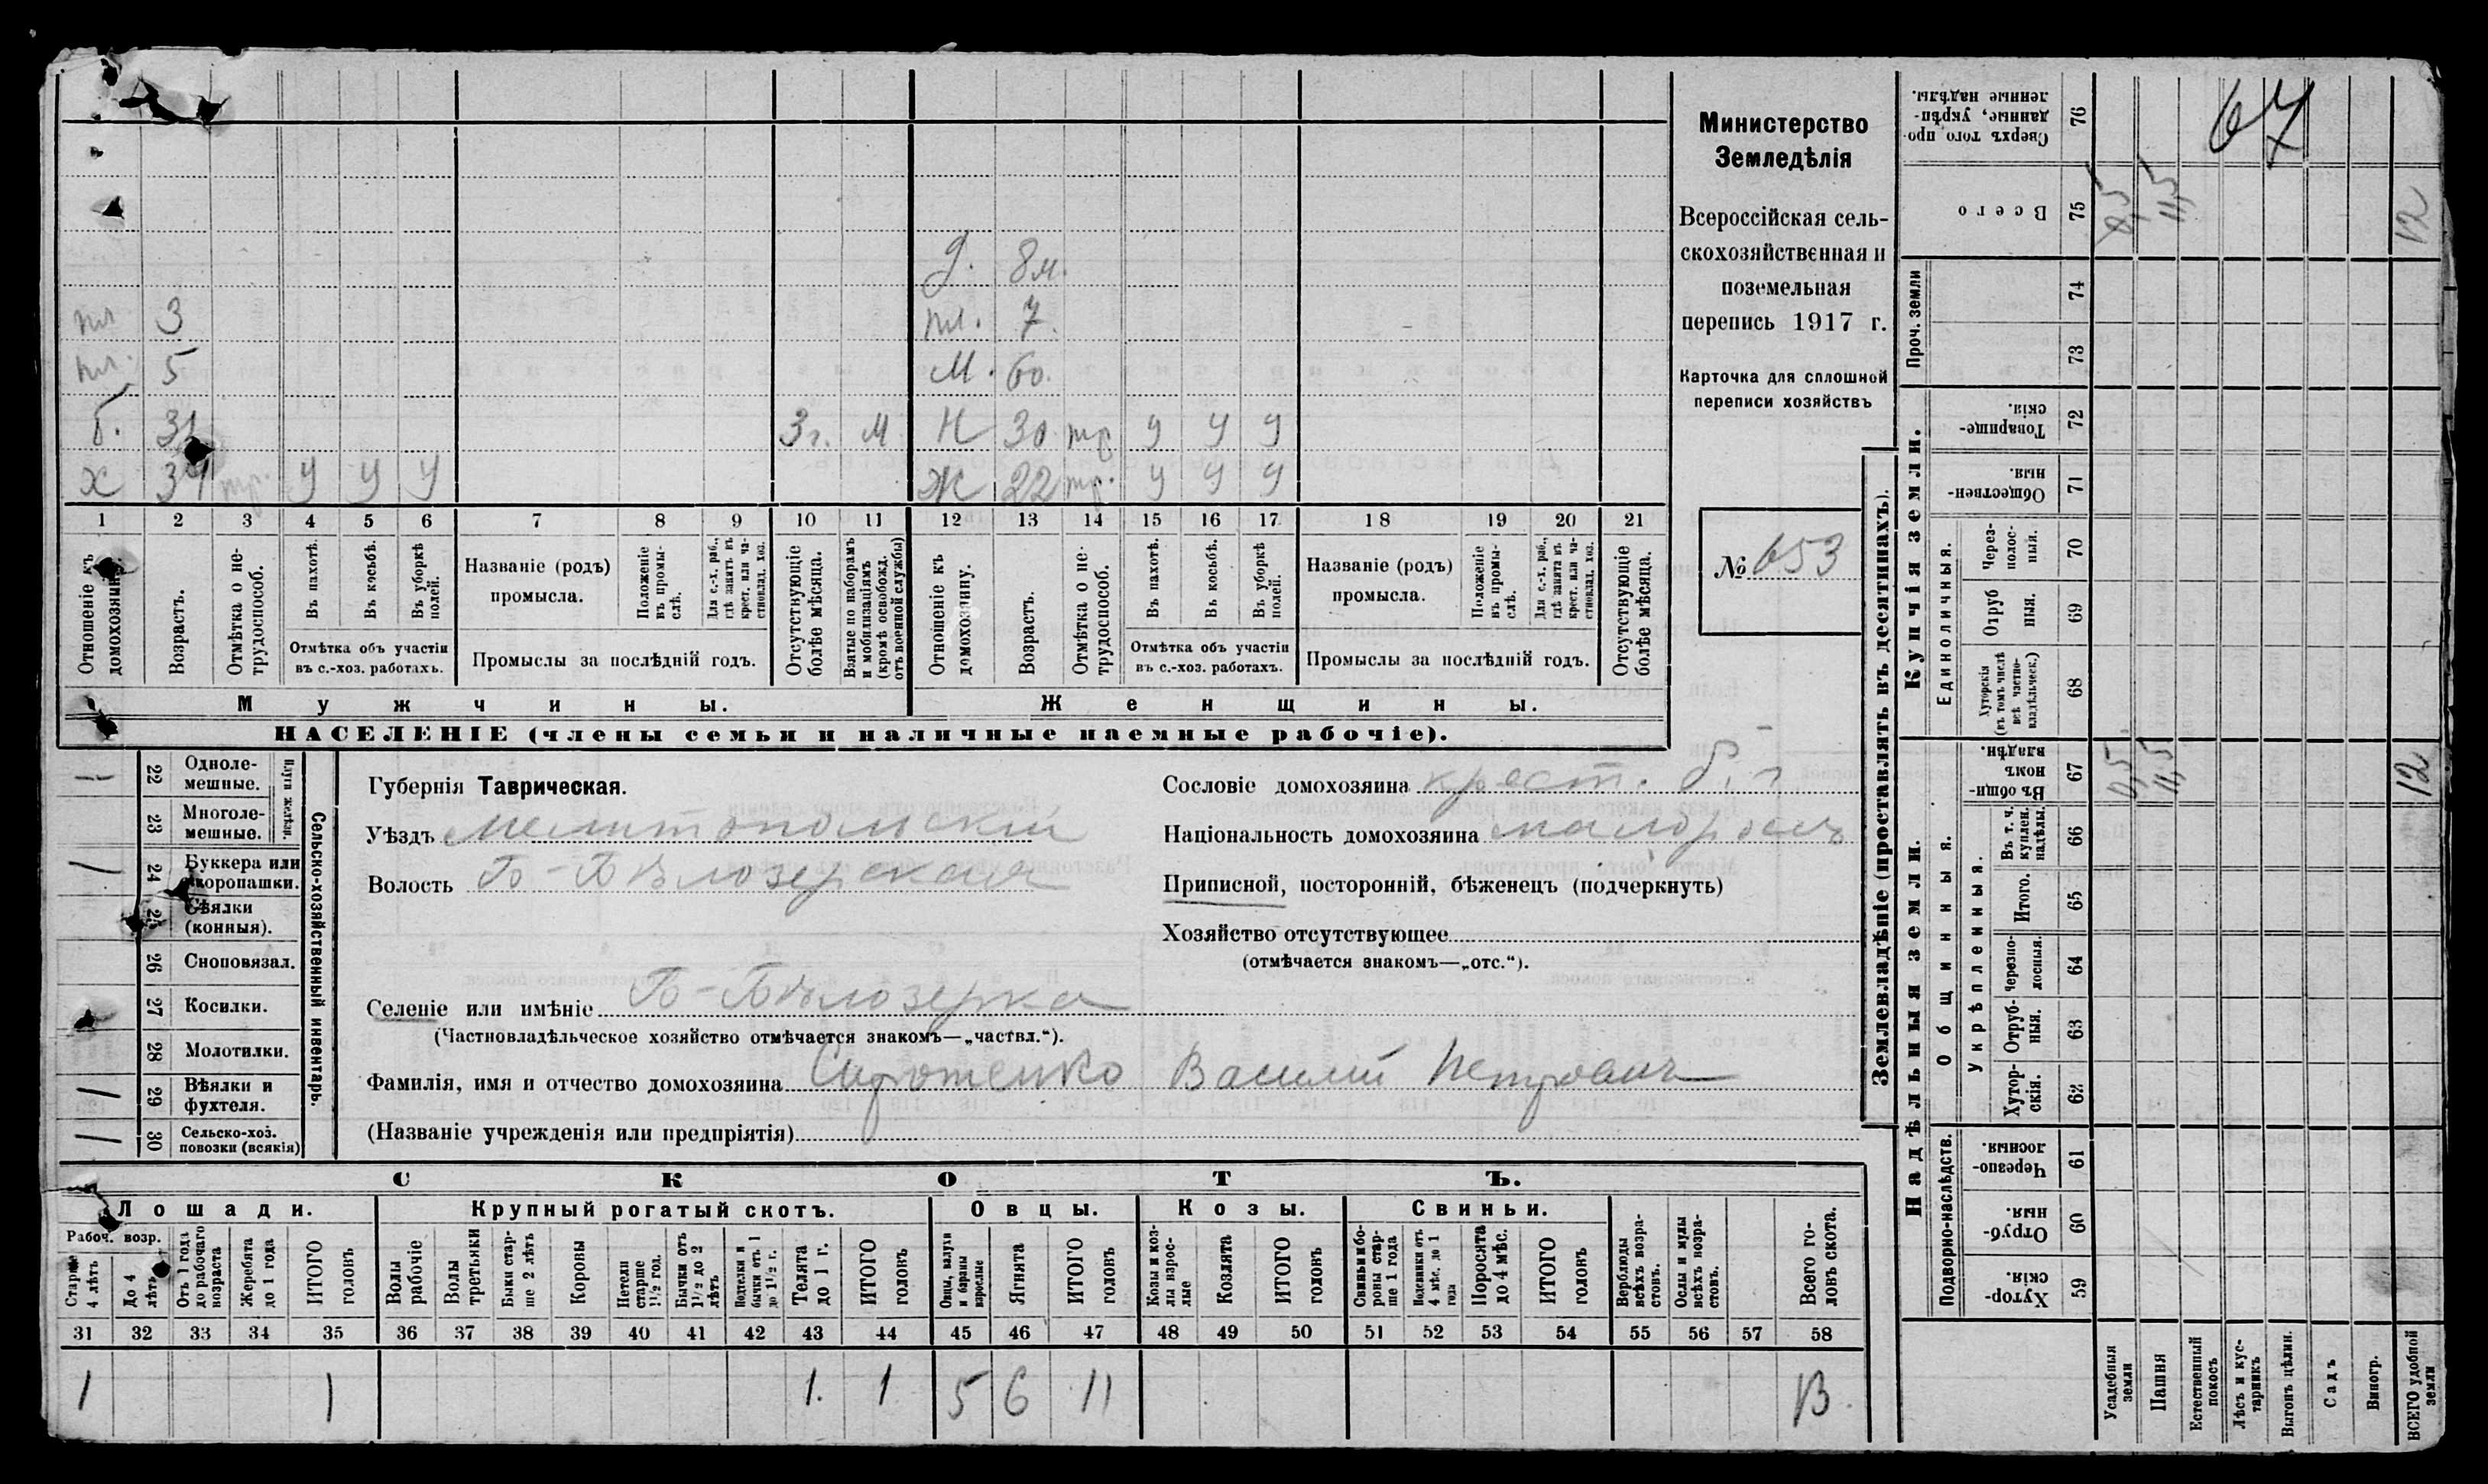 Министерство
Земледѣлія
Всероссійская сель-
скохозяйственная и
поземельная
перепись 1917 г.
Карточка для сплошной
переписи хозяйствъ
№ 653
67
д. 8 м.
пл. 3 пл. 7
пл. 5 М. 60.
б. 31 3 г. М Н 30 тр у у у
х 34 тр. у у у Ж 22 тр. у у у
1 2 3 4 5 6 7 8 9 10 11 12 13 14 15 16 17 18 19 20 21
Отношеніе къ домохозяину.
Возрастъ.
Отмѣтка о не-
трудоспособ.
Въ пахотѣ.
Въ косьбѣ.
Въ уборкѣ
полей.
Отмѣтка объ участіи
въ с.-хоз. работахъ.
Названіе (родъ)
промысла.
Положеніе
въ промы-
слѣ.
Для с.-х. раб.,
гдѣ занятъ въ
крест. или ча-
стновлад. хоз.
Промыслы за послѣдній годъ.
Отсутствующіе
болѣе мѣсяца.
Взятые по наборамъ
и мобилизаціямъ
(кромѣ освобожд.
отъ военной службы)
Отношеніе къ
домохозяину.
Возрастъ.
Отмѣтка о не-
трудоспособ.
Въ пахотѣ.
Въ косьбѣ.
Въ уборкѣ
полей.
Отмѣтка объ участіи
въ с.-хоз. работахъ.
Названіе (родъ)
промысла.
Положеніе
въ промы-
слѣ.
Для с.-х. раб.,
гдѣ занята въ
крест. или ча-
стновлад. хоз.
Промыслы за послѣдній годъ.
Отсутствующіе
болѣе мѣсяца.
Мужчины. Женщины.
НАСЕЛЕНІЕ (члены семьи и наличные наемные рабочіе).
Сельско-хозяйственный инвентарь.
Плуги желѣзн.
1 22 Одноле-
мешные.
23 Многоле-
мешные.
1 24 Буккера или
скоропашки.
25 Сѣялки
(конныя).
26 Сноповязал.
27 Косилки.
28 Молотилки.
1 29 Вѣялки и
фухтеля.
1 30 Сельско-хоз.
повозки (всякія)
Губернія Таврическая.
Уѣздъ Мелитопольскій
Волость Б-Бѣлозерская
Сословіе домохозяина крест. б. г
Національность домохозяина малоросъ
Приписной, посторонній, бѣженецъ (подчеркнуть)
Хозяйство отсутствующее
(отмѣчается знакомъ—„отс.“).
Селеніе или имѣніе Б-Бѣлозерка
(Частновладѣльческое хозяйство отмѣчается знакомъ—„частвл.“).
Фамилія, имя и отчество домохозяина Сиротенко Василій Петровичъ
(Названіе учрежденія или предпріятія)
СКОТЪ.
Лошади. Крупный рогатый скотъ. Овцы. Козы. Свиньи.
Рабоч. возр.
Старше
4 лѣтъ
До 4
лѣтъ
Отъ 1 года
до рабочаго
возраста
Жеребята
до 1 года
ИТОГО
головъ
Волы
рабочіе
Волы
третьяки
Быки стар-
ше 2 лѣтъ
Коровы
Нетели
старше
1½ год.
Бычки отъ
1½ до 2
лѣтъ
Подтелки и
бычки отъ 1
до 1½ г.
Телята
до 1 г.
ИТОГО
головъ
Овцы, валухи
и бараны
взрослые
Ягнята
ИТОГО
головъ
Козы и коз-
лы взрос-
лые
Козлята
ИТОГО
головъ
Свиньи и бо-
ровы стар-
ше 1 года
Подсвинки отъ
4 мѣс. до 1
года
Поросята
до 4 мѣс.
ИТОГО
головъ
Верблюды
всѣхъ возра-
стовъ.
Ослы и мулы
всѣхъ возра-
стовъ.
Всего го-
ловъ скота.
31 32 33 34 35 36 37 38 39 40 41 42 43 44 45 46 47 48 49 50 51 52 53 54 55 56 57 58
1 1 1. 1 5 6 11 13.
Землевладѣніе (проставлять въ десятинахъ).
Надѣльныя земли. Купчія земли. Проч. земли
Подворно-наслѣдств.
Общинныя.
Укрѣпленныя.
Единоличныя.
Хутор-
скія. 59
Отруб-
ныя. 60
Черезпо-
лосныя. 61
Хутор-
скія. 62
Отруб-
ныя. 63
Черезпо-
лосныя. 64
Итого. 65
Въ т. ч.
куплен.
надѣлы. 66
Въ общи-
номъ
владѣн. 67 0,5 11,5 12
Хуторскія
(въ томъ числѣ
всѣ частно-
владѣльческ.) 68
Отруб
ныя. 69
Через-
полос-
ный. 70
Обществен-
ныя. 71
Товарище-
скія. 72
73
74
Всего 75 0,5 11,5 12
Сверхъ того про-
данные, укрѣп-
ленные надѣлы. 76
Усадебныя
земли
Пашня
Естественный
покосъ
Лѣсъ и кус-
тарникъ
Выгонъ цѣлин.
Садъ
Виногр.
ВСЕГО удобной
земли